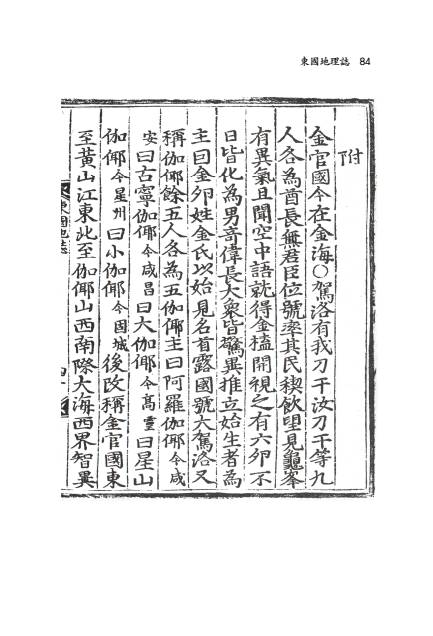 東國地理誌 84
附
金官國今在金海○駕洛有我刀干汝刀干等九
人各為酋長無君臣位號率其民禊飲望見龜峯
有異氣且聞空中語就得金榼開視之有六卵不
日皆化為男奇偉長大衆皆驚異推立始生者為
主曰金卵姓金氏以始見名首露國號大駕洛又
稱伽倻餘五人各為五伽倻主曰阿羅伽倻今咸
安曰古寧伽倻今咸昌曰大伽倻今高靈曰星山
伽倻今星州曰小伽倻今固城後改稱金官國東
至黃山江東北至伽倻山西南際大海西界智異